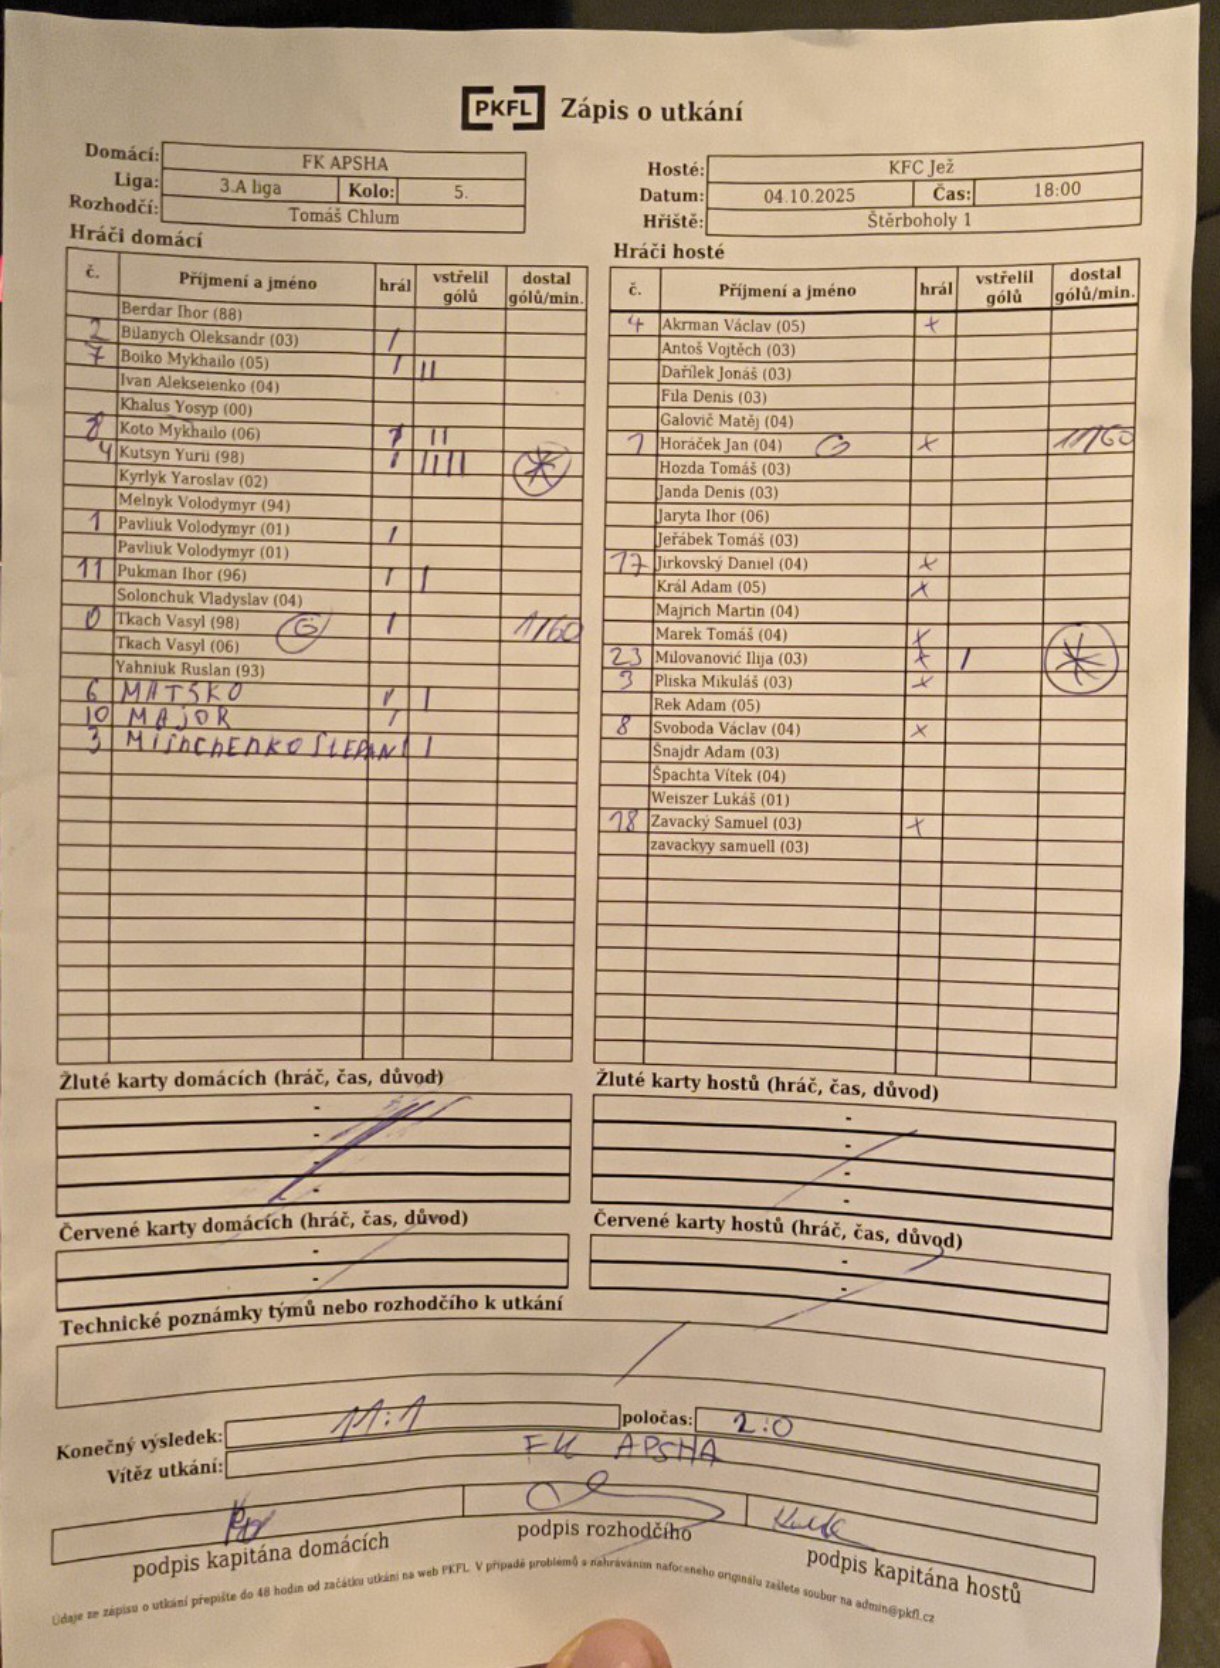 PKFL Zápis o utkání
Domácí: FK APSHA
Liga: 3.A liga Kolo: 5.
Rozhodčí: Tomáš Chlum
Hosté: KFC Jež
Datum: 04.10.2025 Čas: 18:00
Hřiště: Štěrboholy 1
Hráči domácí
č. Příjmení a jméno hrál vstřelil gólů dostal gólů/min.
Berdar Ihor (88)
2 Bilanych Oleksandr (03) /
7 Boiko Mykhailo (05) / ||
Ivan Alekseienko (04)
Khalus Yosyp (00)
8 Koto Mykhailo (06) / ||
4 Kutsyn Yurii (98) / ||||
Kyrlyk Yaroslav (02)
Melnyk Volodymyr (94)
1 Pavliuk Volodymyr (01) /
Pavliuk Volodymyr (01)
11 Pukman Ihor (96) / |
Solonchuk Vladyslav (04)
0 Tkach Vasyl (98) G / 1/60
Tkach Vasyl (06)
Yahniuk Ruslan (93)
6 MATSKO / |
10 MAJOR /
3 MIShChENKO STEPAN / |
Hráči hosté
č. Příjmení a jméno hrál vstřelil gólů dostal gólů/min.
4 Akrman Václav (05) x
Antoš Vojtěch (03)
Dařílek Jonáš (03)
Fila Denis (03)
Galovič Matěj (04)
1 Horáček Jan (04) G x 11/60
Hozda Tomáš (03)
Janda Denis (03)
Jaryta Ihor (06)
Jeřábek Tomáš (03)
17 Jirkovský Daniel (04) x
Král Adam (05) x
Majrich Martin (04)
Marek Tomáš (04) x
23 Milovanović Ilija (03) x /
3 Pliska Mikuláš (03) x
Rek Adam (05)
8 Svoboda Václav (04) x
Šnajdr Adam (03)
Špachta Vítek (04)
Weiszer Lukáš (01)
18 Zavacký Samuel (03) x
zavackyy samuell (03)
Žluté karty domácích (hráč, čas, důvod)
-
-
-
-
Žluté karty hostů (hráč, čas, důvod)
-
-
-
-
Červené karty domácích (hráč, čas, důvod)
-
-
Červené karty hostů (hráč, čas, důvod)
-
-
Technické poznámky týmů nebo rozhodčího k utkání
Konečný výsledek: 11:1 poločas: 2:0
Vítěz utkání: FK APSHA
podpis kapitána domácích
podpis rozhodčího
podpis kapitána hostů
Údaje ze zápisu o utkání přepište do 48 hodin od začátku utkání na web PKFL. V případě problémů s nahráváním nafoceného originálu zašlete soubor na admin@pkfl.cz